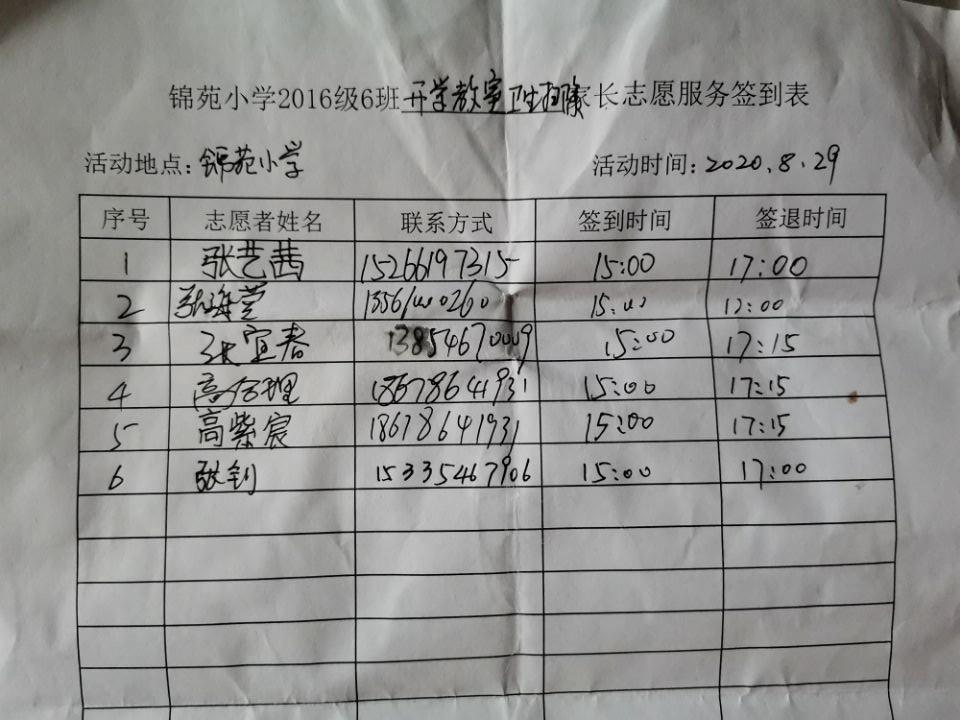 锦苑小学2016级6班开学教室卫生扫除家长志愿服务签到表
活动地点:锦苑小学 活动时间:2020.8.29
序号 志愿者姓名 联系方式 签到时间 签退时间
1 张艺茜 15266197315 15:00 17:00
2 15:00 17:00
3 张宜春 13854670009 15:00 17:15
4 高合理 18678641931 15:00 17:15
5 高紫宸 18678641931 15:00 17:15
6 张钊 15335467906 15:00 17:00